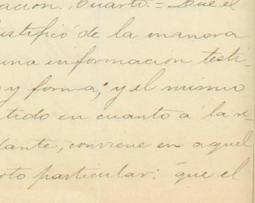 acion. Cuarto. = Que el
stificó de la manera
una informacion testi-
y forma; y el mismo
tido en cuanto á la re-
dante, conviene en aquel
oto particular: que el